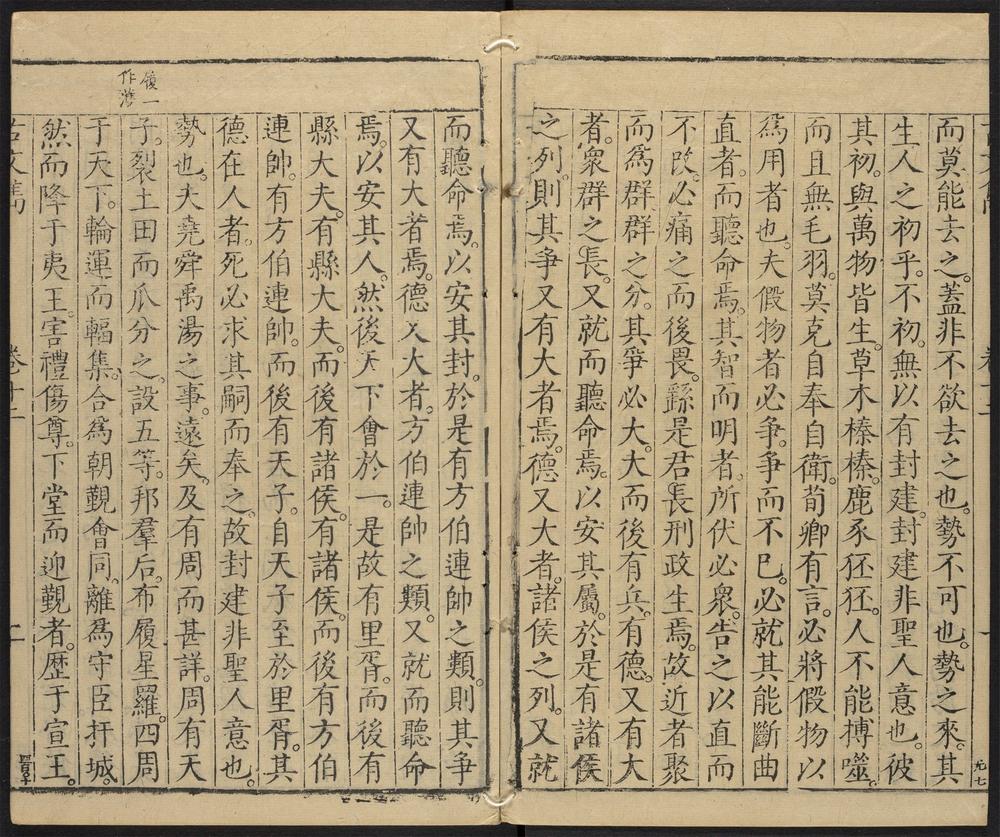 而莫能去之。蓋非不欲去之也。勢不可也。勢之來。其
生人之初乎。不初。無以有封建。封建非聖人意也。彼
其初。與萬物皆生。草木榛榛。鹿豕狉狉。人不能搏噬。
而且無毛羽。莫克自奉自衛。荀卿有言。必將假物以
爲用者也。夫假物者必爭。爭而不已。必就其能斷曲
直者。而聽命焉。其智而明者。所伏必衆。告之以直而
不改。必痛之而後畏。繇是君長刑政生焉。故近者聚
而爲群。群之分。其爭必大。大而後有兵。有德。又有大
者。衆群之長。又就而聽命焉。以安其屬。於是有諸侯
之列。則其爭又有大者焉。德又大者。諸侯之列。又就
而聽命焉。以安其封。於是有方伯連帥之類。則其爭
又有大者焉。德又大者。方伯連帥之類。又就而聽命
焉。以安其人。然後天下會於一。是故有里胥。而後有
縣大夫。有縣大夫。而後有諸侯。有諸侯。而後有方伯
連帥。有方伯連帥。而後有天子。自天子至於里胥。其
德在人者。死必求其嗣而奉之。故封建非聖人意也。
勢也。夫堯舜禹湯之事。遠矣。及有周而甚詳。周有天
子。裂土田而瓜分之。設五等。邦羣后。布履星羅。四周
于天下。輪運而輻集。合爲朝覲會同。離爲守臣扞城。
然而降于夷王。害禮傷尊。下堂而迎覲者。歷于宣王。
履一
作濩
卷十二
二